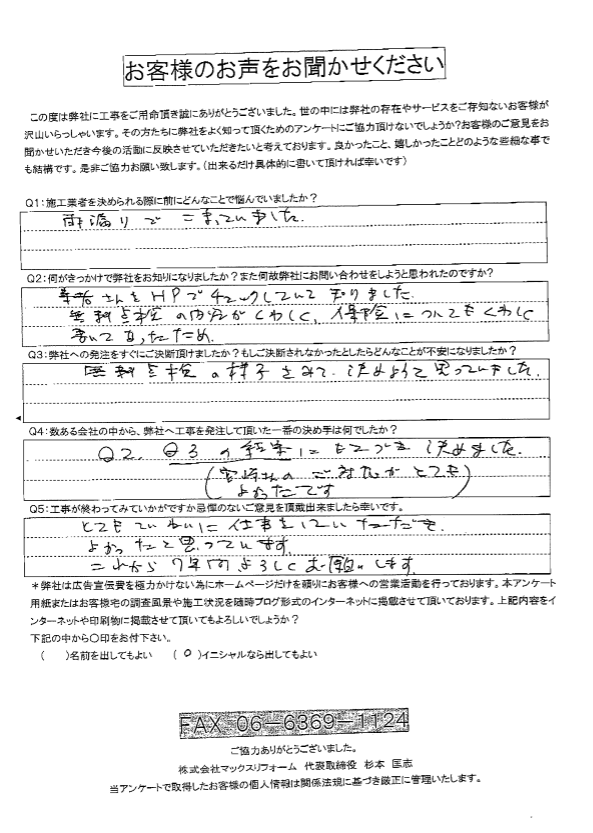 お客様のお声をお聞かせください
この度は弊社に工事をご用命頂き誠にありがとうございました。世の中には弊社の存在やサービスをご存知ないお客様が
沢山いらっしゃいます。その方たちに弊社をよく知って頂くためのアンケートにご協力頂けないでしょうか?お客様のご意見をお
聞かせいただき今後の活動に反映させていただきたいと考えております。良かったこと、嬉しかったことどのような些細な事で
も結構です。是非ご協力お願い致します。(出来るだけ具体的に書いて頂ければ幸いです)
Q1:施工業者を決められる際に前にどんなことで悩んでいましたか?
雨漏りでこまっていました.
Q2:何がきっかけで弊社をお知りになりましたか?また何故弊社にお問い合わせをしようと思われたのですか?
さんをHPでチェックしていて知りました.
無料点検の内容がくわしく、保険についてもくわしく
書いてあったため.
Q3:弊社への発注をすぐにご決断頂けましたか?もしご決断されなかったとしたらどんなことが不安になりましたか?
無料点検の様子をみて、決めようと思っていました.
Q4:数ある会社の中から、弊社へ工事を発注して頂いた一番の決め手は何でしたか?
Q2、Q3の結果にもとづき決めました.
(宮崎さんのご対応がとても
よかったです)
Q5:工事が終わってみていかがですか忌憚のないご意見を頂戴出来ましたら幸いです。
とてもていねいに仕事をしていただき
よかったと思っています.
これから7年間よろしくお願いします.
*弊社は広告宣伝費を極力かけない為にホームページだけを頼りにお客様への営業活動を行っております。本アンケート
用紙またはお客様宅の調査風景や施工状況を随時ブログ形式のインターネットに掲載させて頂いております。上記内容をイ
ンターネットや印刷物に掲載させて頂いてもよろしいでしょうか?
下記の中から〇印をお付下さい。
( )名前を出してもよい (○)イニシャルなら出してもよい
FAX 06-6369-1124
ご協力ありがとうございました。
株式会社マックスリフォーム 代表取締役 杉本 匡志
当アンケートで取得したお客様の個人情報は関係法規に基づき厳正に管理いたします。